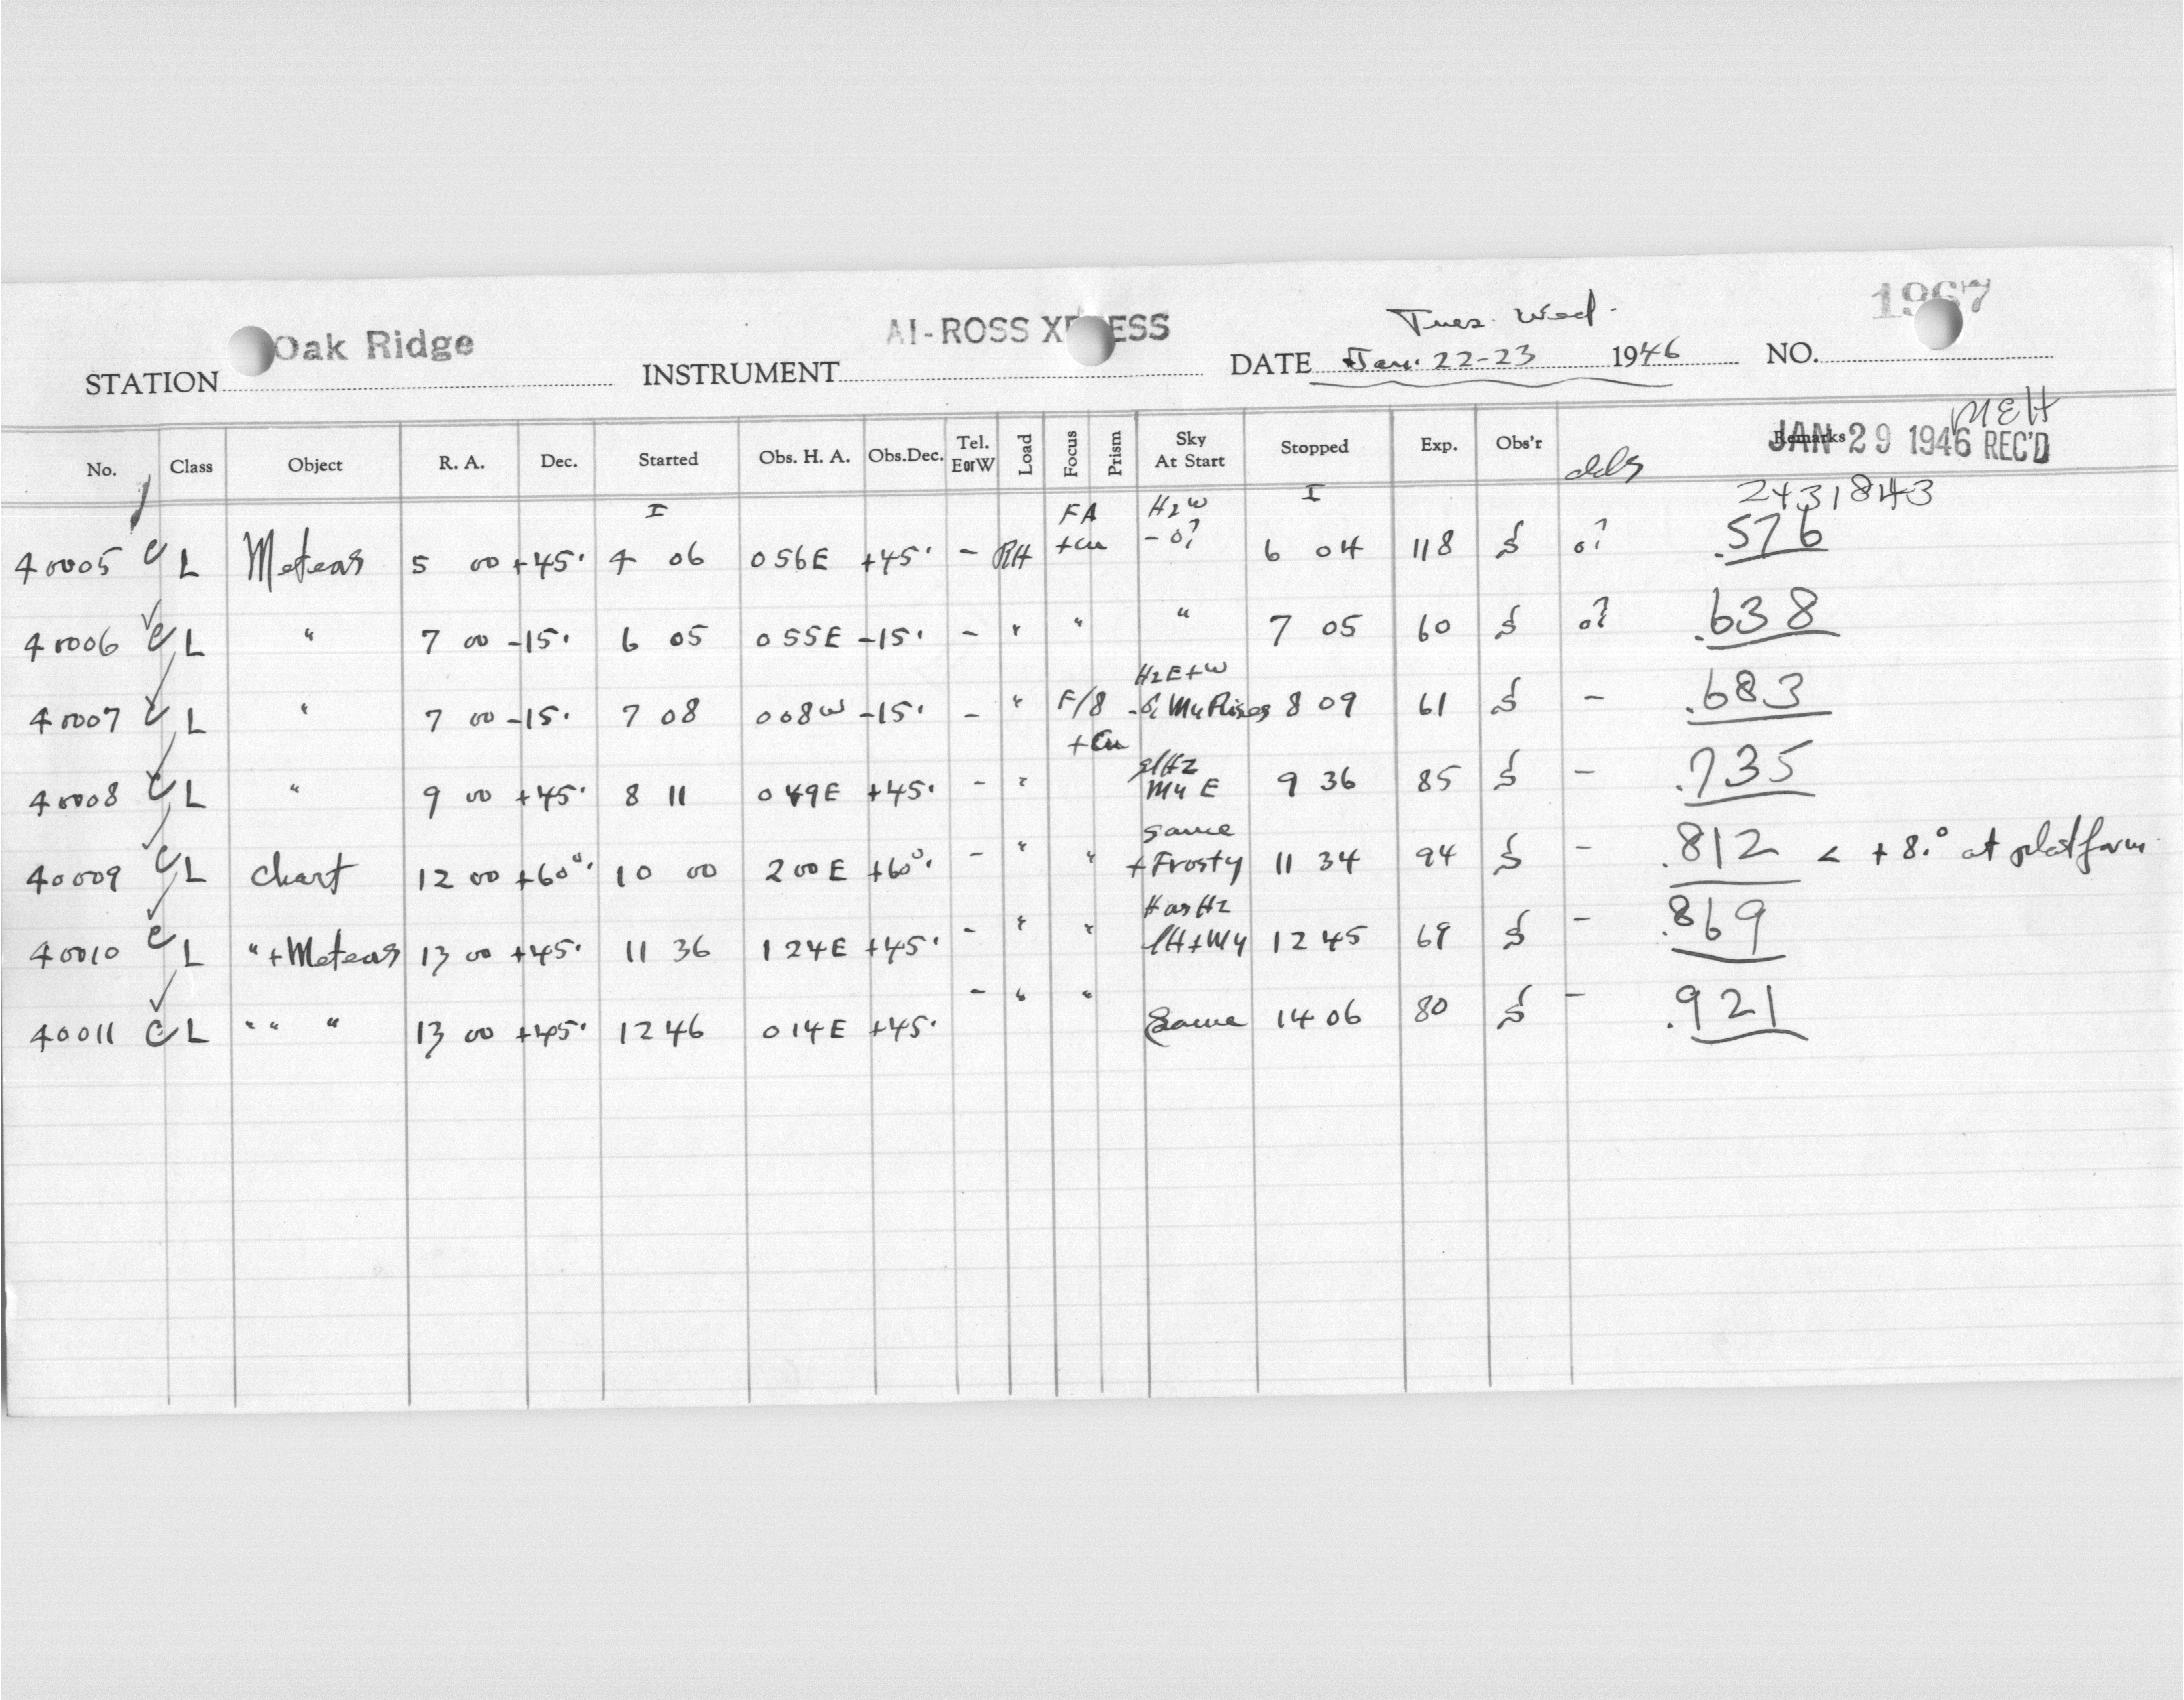 1967
Oak Ridge AI-ROSS XPRESS Tues. Wed.
STATION INSTRUMENT DATE Jan. 22-23 1946 NO.
MEH
JAN 29 1946 REC'D
No. Class Object R. A. Dec. Started Obs. H. A. Obs.Dec. Tel. E or W Load Focus Prism Sky At Start Stopped Exp. Obs'r Remarks
I FA H2W I 2431843
40005 C L Meteors 5 00 +45° 4 06 0 56E +45° - RH +Cu - 0? 6 04 118 0? .576
40006 C L " 7 00 -15° 6 05 0 55E -15° - " " " 7 05 60 0? .638
H2E+W
40007 C L " 7 00 -15° 7 08 0 08W -15° - " F/8 8 09 61 - .683
+Cu
40008 C L " 9 00 +45° 8 11 0 49E +45° - " slH2 My E 9 36 85 - .735
same
40009 C L Chart 12 00 +60° 10 00 2 00 E +60° - " " + Frosty 11 34 94 - .812 < + 8.° at platform
H as H2
40010 C L " + Meteors 13 00 +45° 11 36 1 24E +45° - " " lH+My 12 45 69 - .869
40011 C L " " " 13 00 +45° 12 46 0 14E +45° - " " Same 14 06 80 - .921